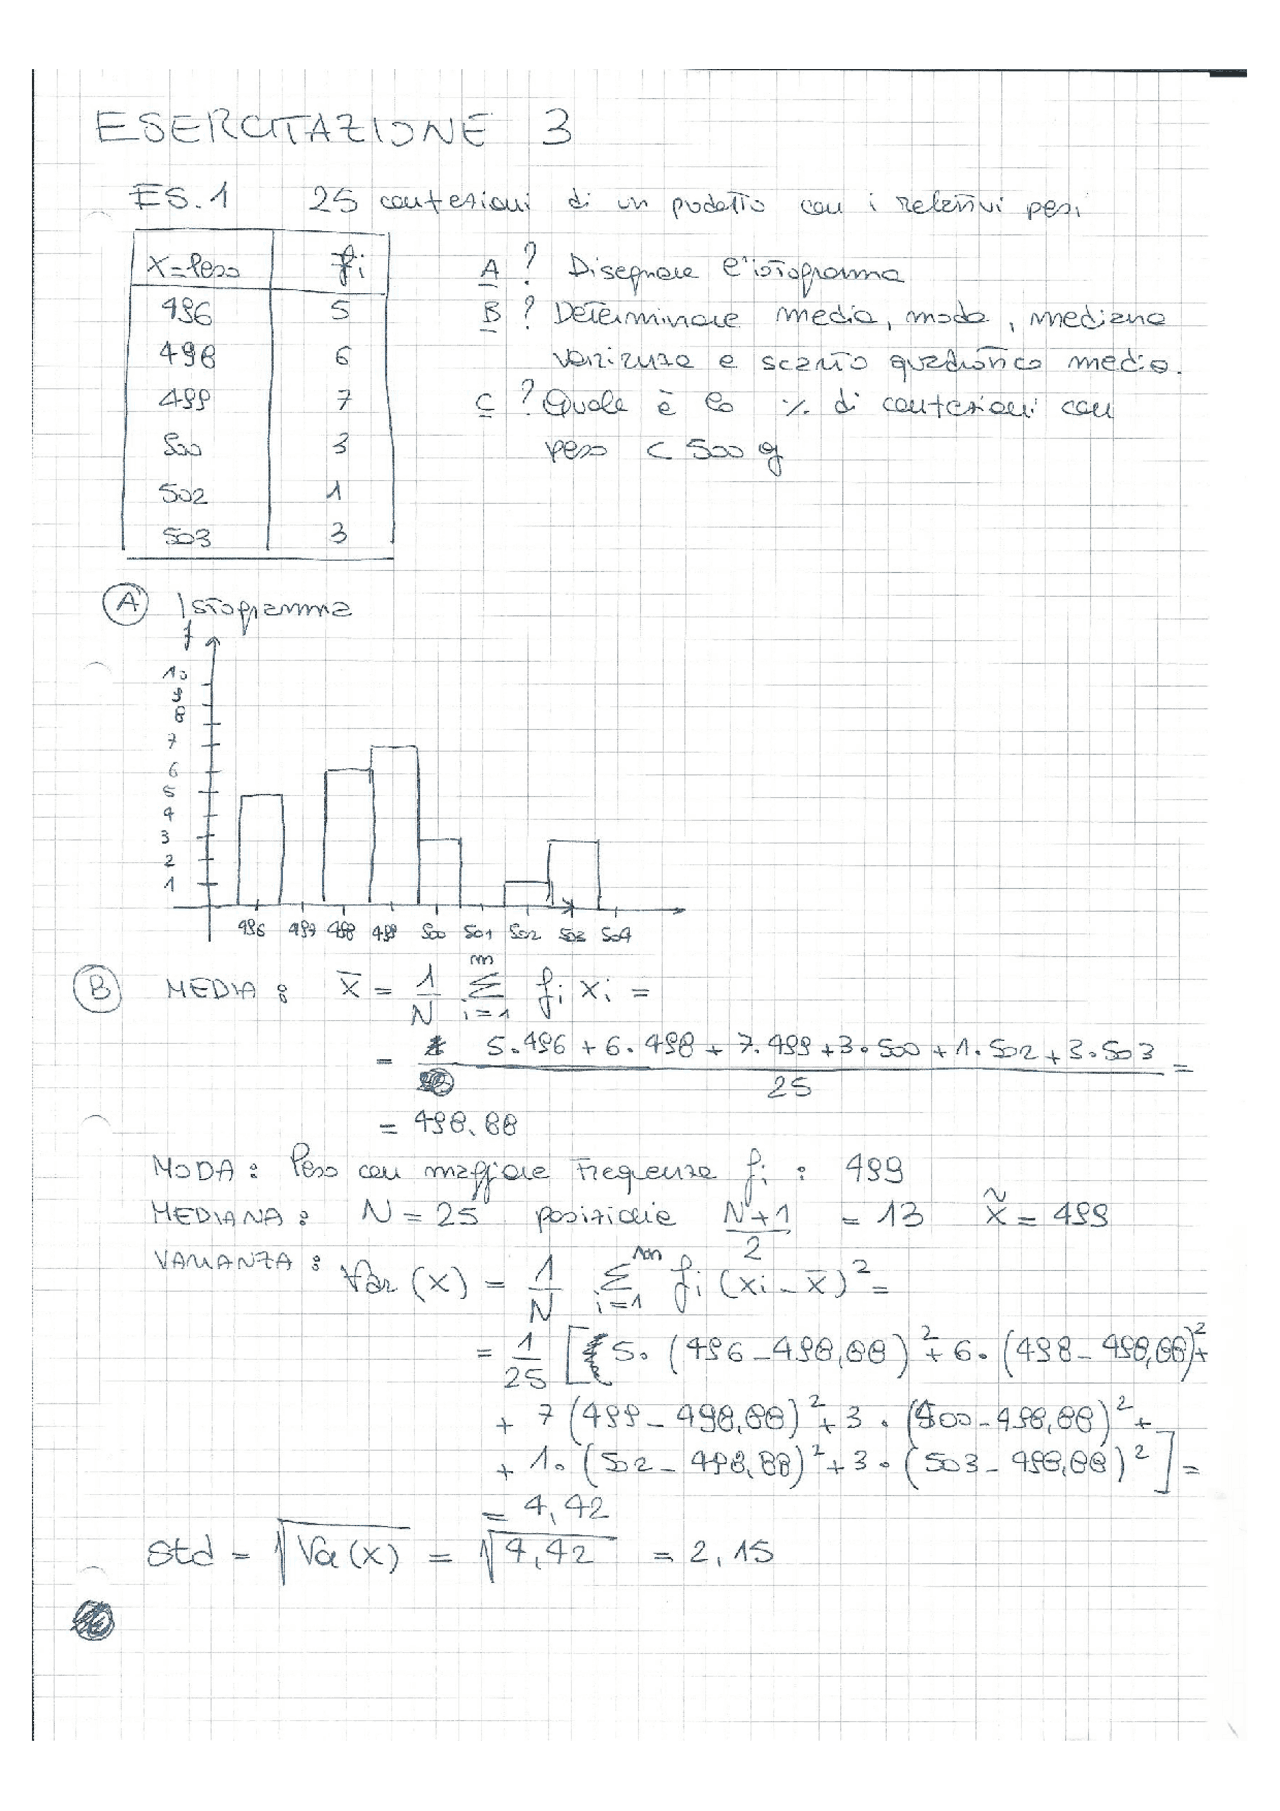 ESERCITAZIONE 3
ES.1 25 confezioni di un prodotto con i relativi pesi
X=Peso fi
496 5
498 6
499 7
500 3
502 1
503 3
A ? Disegnare l'istogramma
B ? Determinare media, moda, mediana
varianza e scarto quadratico medio.
C ? Quale è la % di confezioni con
peso < 500 g
A Istogramma
f
10
9
8
7
6
5
4
3
2
1
496 497 498 499 500 501 502 503 504
B MEDIA: x̄ = 1/N Σ_{i=1}^{m} fi xi =
= 5·496 + 6·498 + 7·499 + 3·500 + 1·502 + 3·503 / 25 =
= 498.88
MODA: Peso con maggiore frequenza fi: 499
MEDIANA: N = 25 posizione (N+1)/2 = 13 x̃ = 499
VARIANZA: Var (x) = 1/N Σ_{i=1}^{m} fi (xi - x̄)² =
= 1/25 [5·(496-498,88)² + 6·(498-498,88)² +
+ 7(499-498,88)² + 3·(500-498,88)² +
+ 1·(502-498,88)² + 3·(503-498,88)²] =
= 4,42
Std = √Va(x) = √4,42 = 2,15